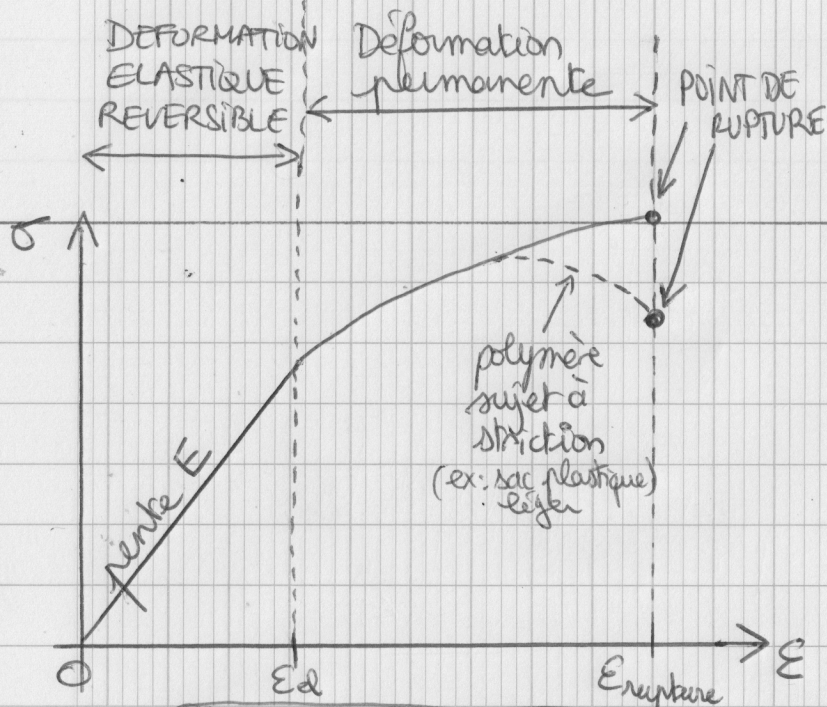 DEFORMATION
ELASTIQUE
REVERSIBLE
Déformation
permanente
POINT DE
RUPTURE
σ
polymère
sujet à
striction
(ex: sac plastique)
léger
pente E
O
Eel
Erupture
ε